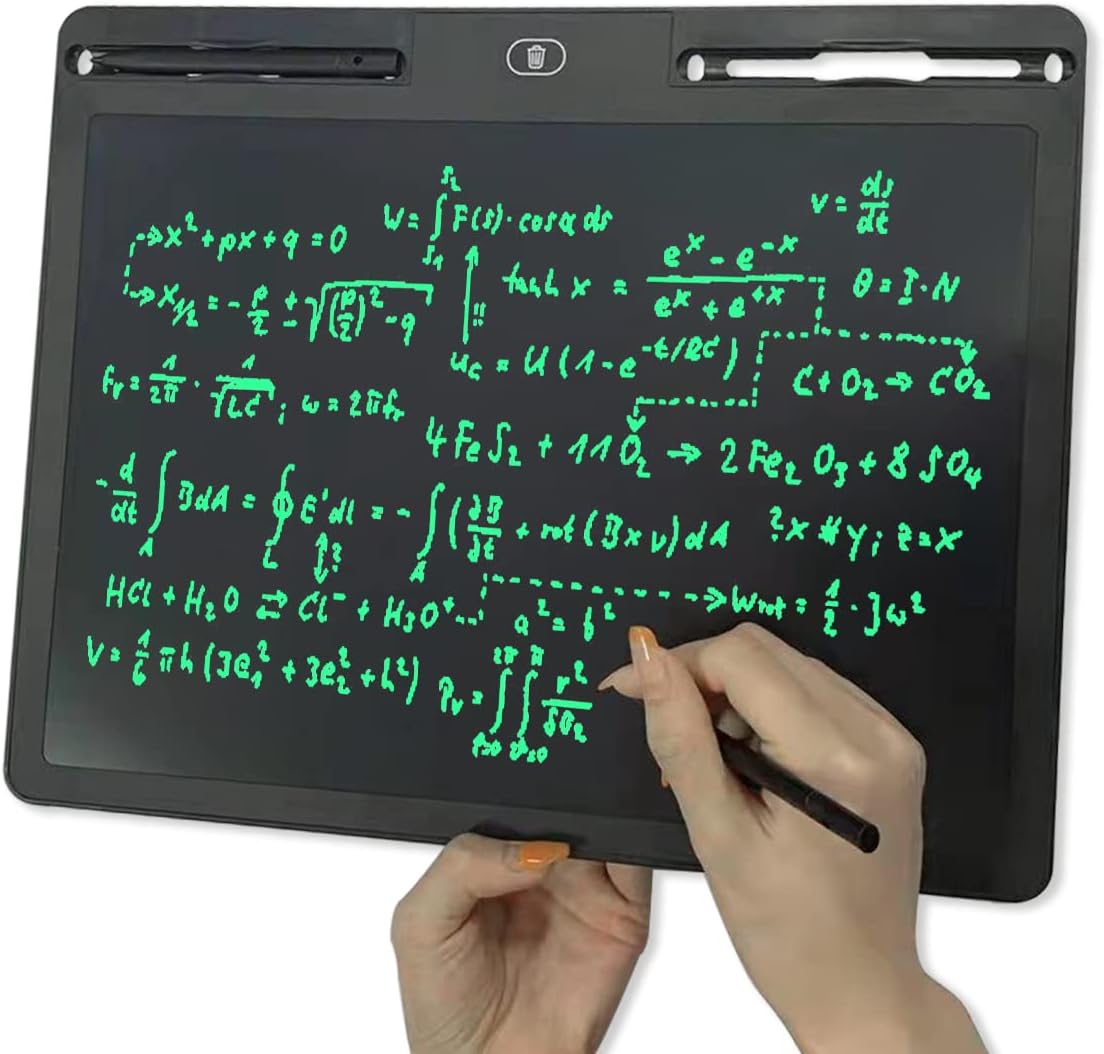 x² + px + q = 0
W = ∫ₛ₁^ₛ₂ F(s) · cos α ds
v = ds/dt
x₁/₂ = - p/2 ± √((p/2)² - q)
!!
tanh x = (eˣ - e⁻ˣ)/(eˣ + e⁺ˣ)
θ = I · N
u_c = U (1 - e^(-t/RC))
C + O₂ → CO₂
f_r = 1/2π · 1/√LC ; ω = 2πf_r
4 FeS₂ + 11 O₂ → 2 Fe₂O₃ + 8 SO₄
- d/dt ∫_A B dA = ∮_L E' dl = - ∫_A (∂B/∂t + rot (B × v) dA
?x # y; z = x
↕?
HCl + H₂O ⇄ Cl⁻ + H₃O⁺
a² = b²
W_rot = 1/2 · J ω²
V = 1/6 π h (3e₁² + 3e₂² + h²)
P_v = ∫∫ r²